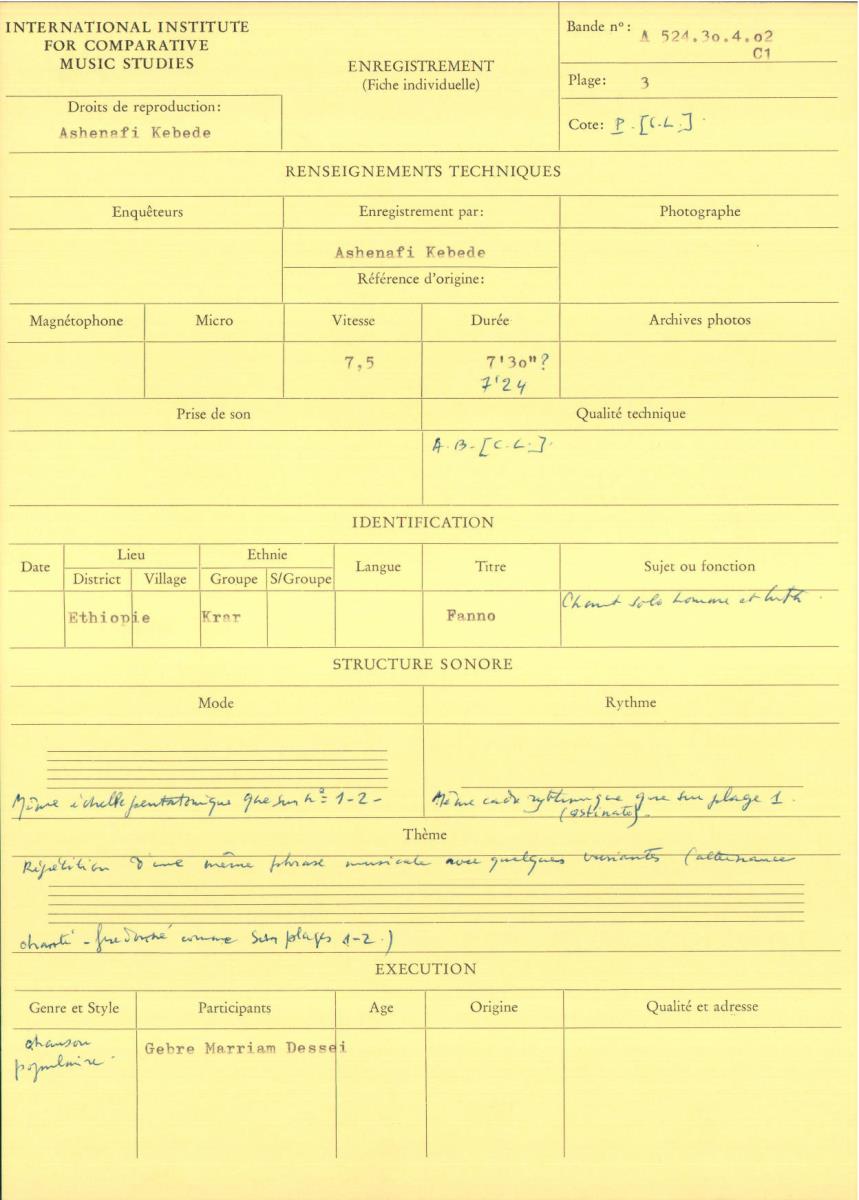 INTERNATIONAL INSTITUTE
FOR COMPARATIVE
MUSIC STUDIES
Droits de reproduction:
Ashenafi Kebede
ENREGISTREMENT
(Fiche individuelle)
Bande nº: A 524.3o.4.o2
C1
Plage: 3
Cote: P. [C.L.]
RENSEIGNEMENTS TECHNIQUES
Enquêteurs
Enregistrement par:
Photographe
Ashenafi Kebede
Référence d'origine:
Magnétophone
Micro
Vitesse
Durée
Archives photos
7,5
7'3o"?
7'24
Prise de son
Qualité technique
A.B. [C.L.].
IDENTIFICATION
Date
Lieu
Ethnie
Langue
Titre
Sujet ou fonction
District
Village
Groupe
S/Groupe
Ethiopie
Krar
Fanno
Chant solo homme et luth.
STRUCTURE SONORE
Mode
Rythme
Même échelle pentatonique que sur nº 1-2-
Même cadre rythmique que sur plage 1.
(ostinato).
Thème
Répétition d'une même phrase musicale avec quelques variantes (alternance
chanté - fredonné comme sur plages 1-2.)
EXECUTION
Genre et Style
Participants
Age
Origine
Qualité et adresse
chanson
populaire.
Gebre Marriam Dessei